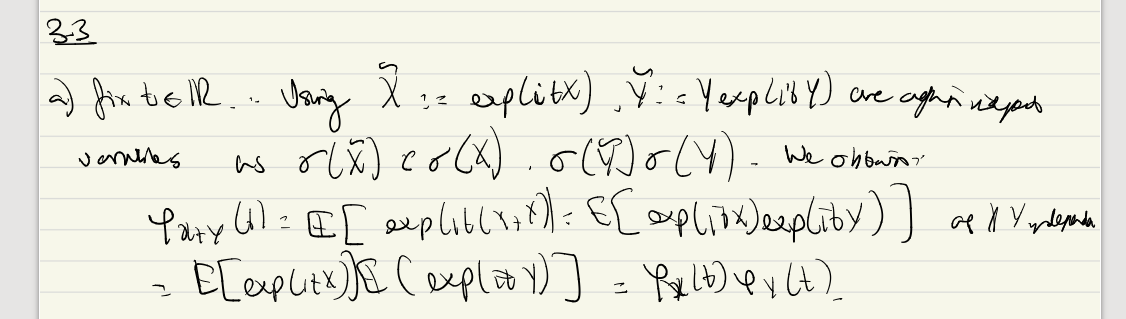 3.3
a) fix t ∈ ℝ. Using X̃ := exp(itX), Ỹ := Y exp(itY) are again indepen
variables as σ(X̃) ⊂ σ(X), σ(Ỹ) σ(Y). We obtain:
φ_{X+Y}(t) = 𝔼[exp(it(X+Y)] = E[exp(itX)exp(itY)] as X Y independen
= E[exp(itX)]E(exp(itY)] = φ_X(t)φ_Y(t).